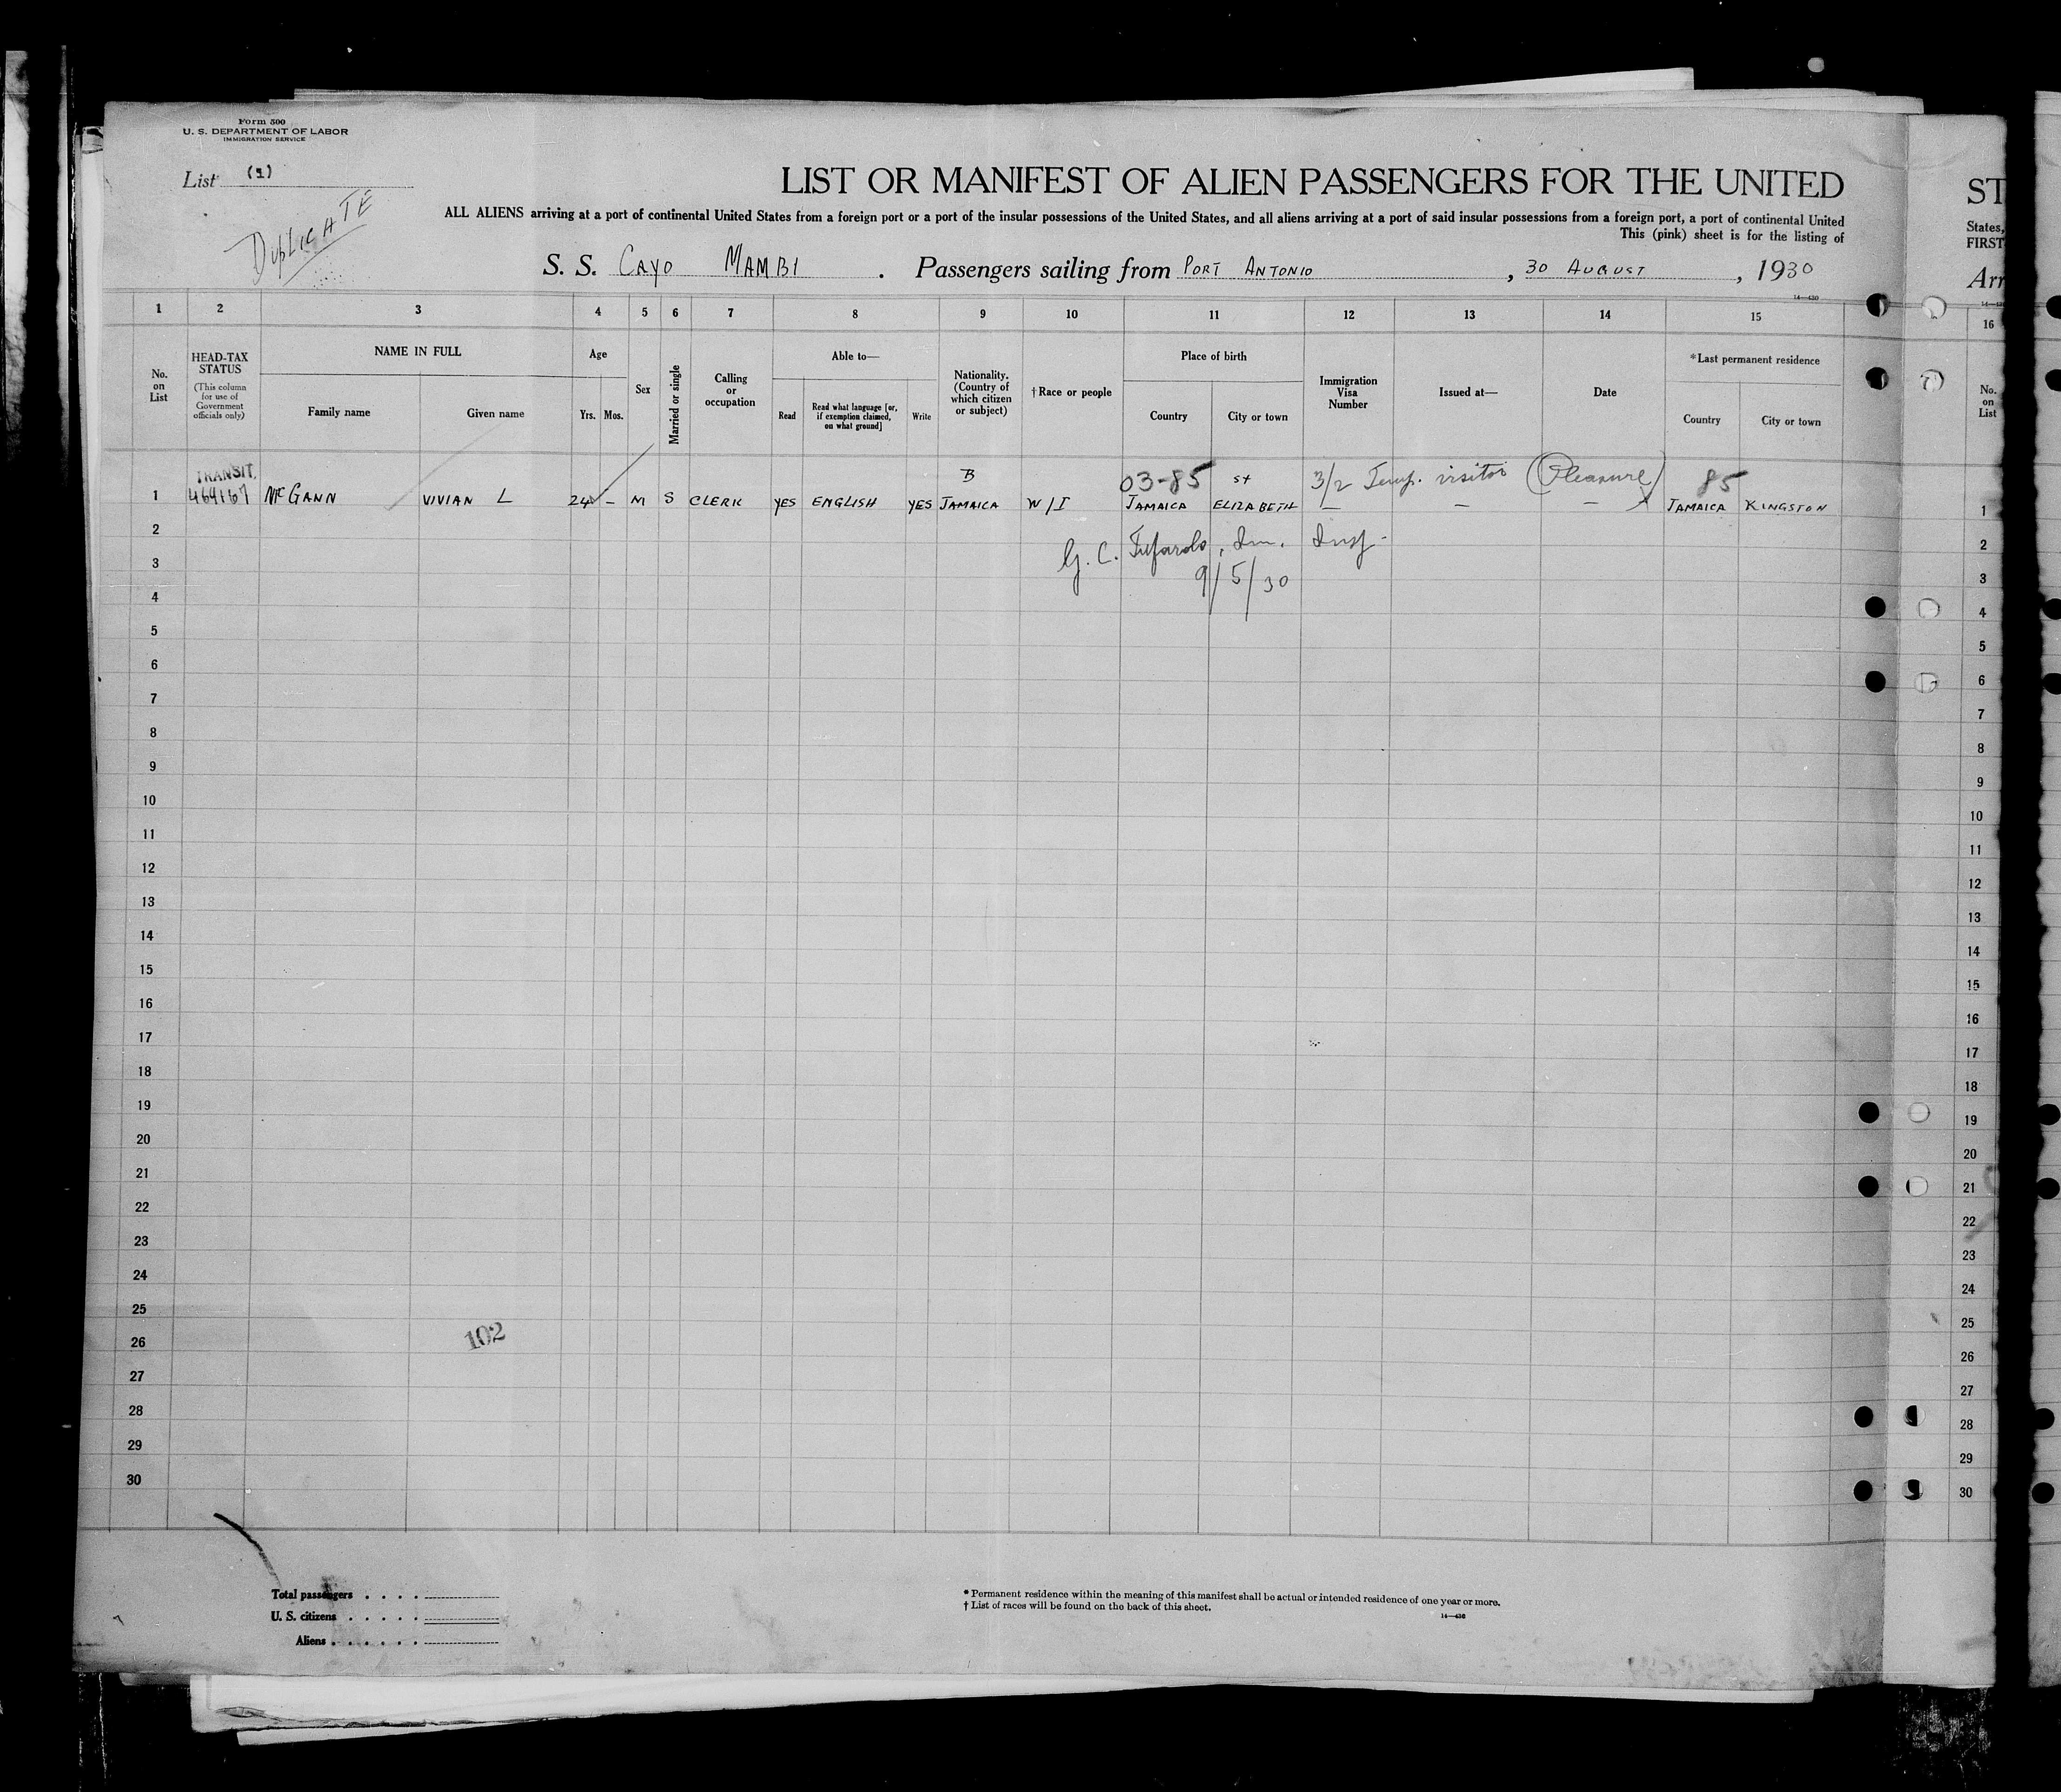 Form 500
U. S. DEPARTMENT OF LABOR
IMMIGRATION SERVICE
List (1)
DUPLICATE
LIST OR MANIFEST OF ALIEN PASSENGERS FOR THE UNITED
ST
ALL ALIENS arriving at a port of continental United States from a foreign port or a port of the insular possessions of the United States, and all aliens arriving at a port of said insular possessions from a foreign port, a port of continental United
States,
This (pink) sheet is for the listing of
FIRST
S. S. CAYO MAMBI . Passengers sailing from PORT ANTONIO , 30 AUGUST , 1930
Arr
14—430
1 2 3 4 5 6 7 8 9 10 11 12 13 14 15 16
No. on List
HEAD-TAX STATUS
(This column for use of Government officials only)
NAME IN FULL
Family name Given name
Age
Yrs. Mos.
Sex
Married or single
Calling or occupation
Able to—
Read
Read what language [or, if exemption claimed, on what ground]
Write
Nationality. (Country of which citizen or subject)
† Race or people
Place of birth
Country City or town
Immigration Visa Number
Issued at—
Date
*Last permanent residence
Country City or town
No. on List
TRANSIT. B 03-85 St 3/2 Temp. visitor (Pleasure) 85
1 464167 McGANN VIVIAN L 24 – M S CLERK YES ENGLISH YES JAMAICA W/I JAMAICA ELIZABETH – – – JAMAICA KINGSTON 1
2 G. C. Im. Insp. 2
3 9/5/30 3
4 4
5 5
6 6
7 7
8 8
9 9
10 10
11 11
12 12
13 13
14 14
15 15
16 16
17 17
18 18
19 19
20 20
21 21
22 22
23 23
24 24
25 25
26 102 26
27 27
28 28
29 29
30 30
Total passengers . . . .
U. S. citizens . . . . .
Aliens . . . . . .
* Permanent residence within the meaning of this manifest shall be actual or intended residence of one year or more.
† List of races will be found on the back of this sheet.
14—430